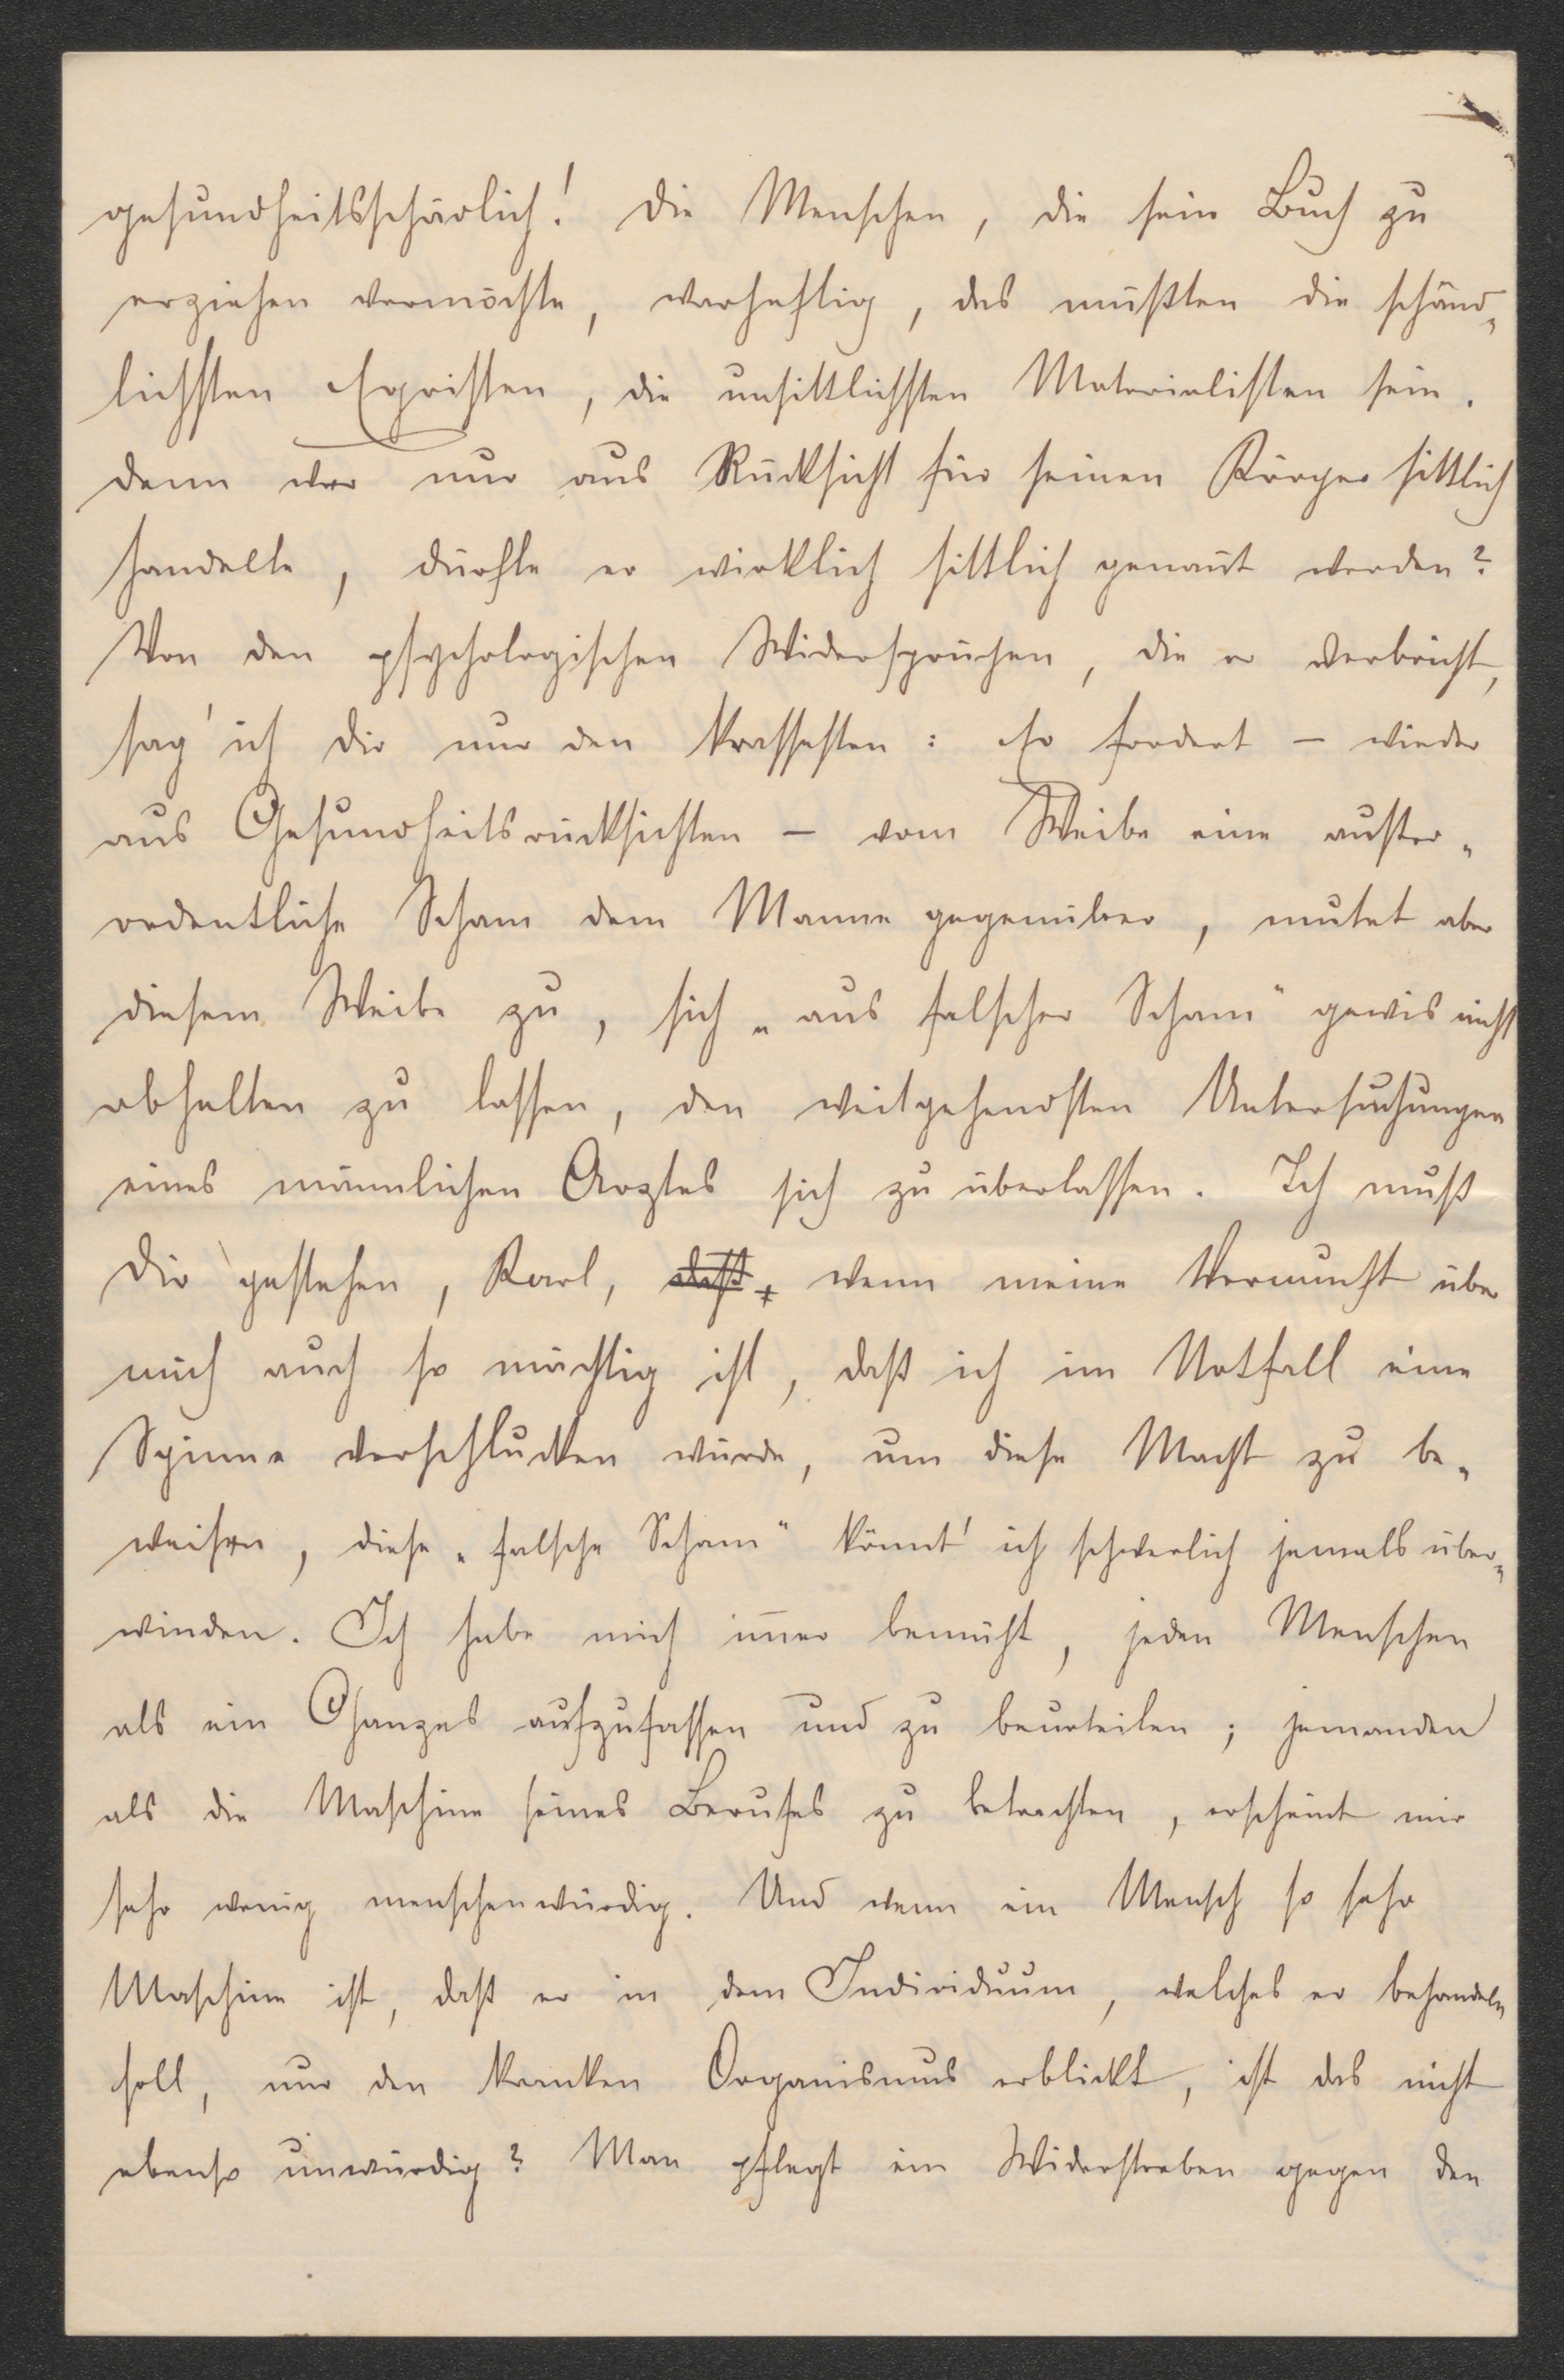 gesundheitsschädlich! Die Menschen, die sein Buch zu
erziehen vermöchte, warhaftig, das müßten die schänd„
lichsten Egoisten, die unsittlichsten Materialisten sein.
denn wer nur aus Rücksicht für seinen Körper sittlich
handelte, dürfte er wirklich sittlich genannt werden?
Von den psychologischen Widersprüchen, die er verbricht,
sag' ich dir nur den krassesten: Er fordert – wieder
aus Gesundheitsrücksichten – vom Weibe eine außer„
ordentliche Scham dem Manne gegenüber, mutet aber
diesem Weibe zu, sich „aus falscher Scham" gewis nicht
abhalten zu lassen, den weitgehendsten Untersuchungen
eines männlichen Arztes sich zu überlassen. Ich muß
dir gestehen, Karl, daß, wenn meine Vernunft über
mich auch so mächtig ist, daß ich im Notfall eine
Spinne verschlucken würde, um diese Macht zu be„
weisen, diese „falsche Scham" könnt' ich schwerlich jemals über„
winden. Ich habe mich im̅er bemüht, jeden Menschen
als ein Ganzes aufzufassen und zu beurteilen; jemanden
als die Maschine seines Berufes zu betrachten, erscheint mir
sehr wenig menschenwürdig. Und wenn ein Mensch so sehr
Maschine ist, daß er in dem Individuum, welches er behandeln
soll, nur den kranken Organismus erblickt, ist das nicht
ebenso unwürdig? Man pflegt ein Widerstreben gegen den